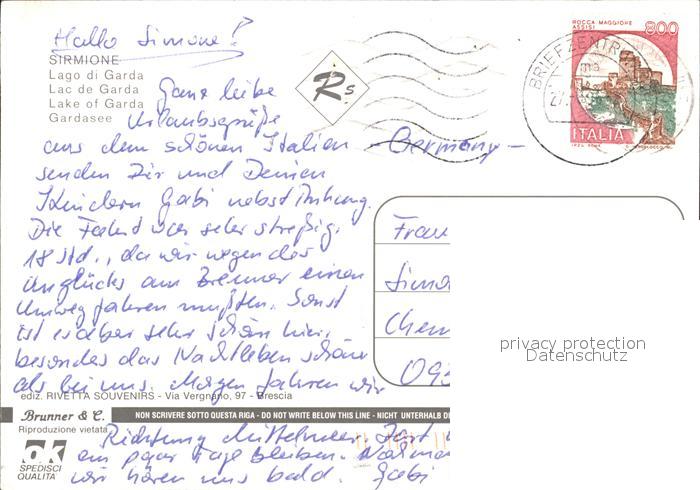 Hallo Simone!
SIRMIONE
Lago di Garda
Lac de Garda
Lake of Garda
Gardasee
Ganz liebe
Urlaubsgrüße
aus dem schönen Italien
senden Dir und Deinen
Kindern Gabi nebst Anhang.
Die Fahrt war sehr streßig,
18 Std., da wir wegen des
Unglücks am Brenner einen
Umweg fahren mußten. Sonst
ist es aber sehr schön hier,
besonders das Nachtleben schöner
als bei uns. Morgen fahren wir
Richtung Mittelmeer
ein paar Tage bleiben.
wir hören uns bald. Gabi
Rs
ROCCA MAGGIORE
ASSISI
800
ITALIA
BRIEFZENTR
- Germany -
Frau
Simo
Chem
093
privacy protection
Datenschutz
ediz. RIVETTA SOUVENIRS - Via Vergnano, 97 - Brescia
Brunner & C.
Riproduzione vietata
NON SCRIVERE SOTTO QUESTA RIGA - DO NOT WRITE BELOW THIS LINE - NICHT UNTERHALB DI
ok
SPEDISCI
QUALITA'